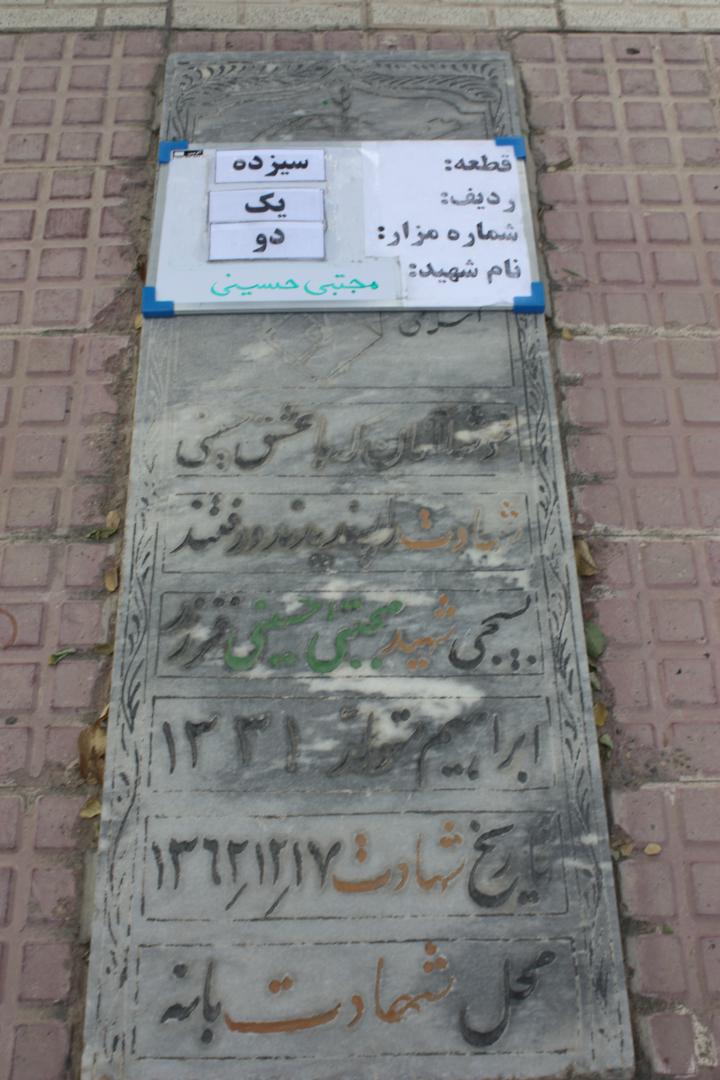 قطعه: سیزده
ردیف: یک
شماره مزار: دو
نام شهید: مجتبی حسینی
خوشا آنان که با عشق حسینی
شهادت را پسندیدند و رفتند
بسیجی شهید مجتبی حسینی فرزند
ابراهیم تولد ۱۳۳۱
تاریخ شهادت ۱۳۶۲/۱۲/۱۷
محل شهادت بانه